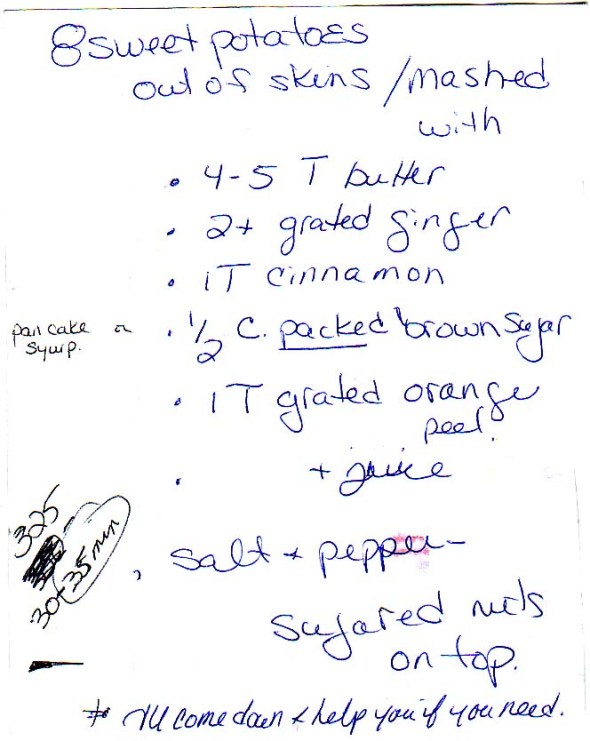 8 sweet potatoes
out of skins / mashed
with
• 4-5 T butter
• 2t grated ginger
• 1T cinnamon
pancake or
syurp.
• 1/2 C. packed brown sugar
• 1T grated orange
peel.
• + juice
325
30-35 min
• salt + pepper -
sugared nuts
on top.
* I'll come down & help you if you need.